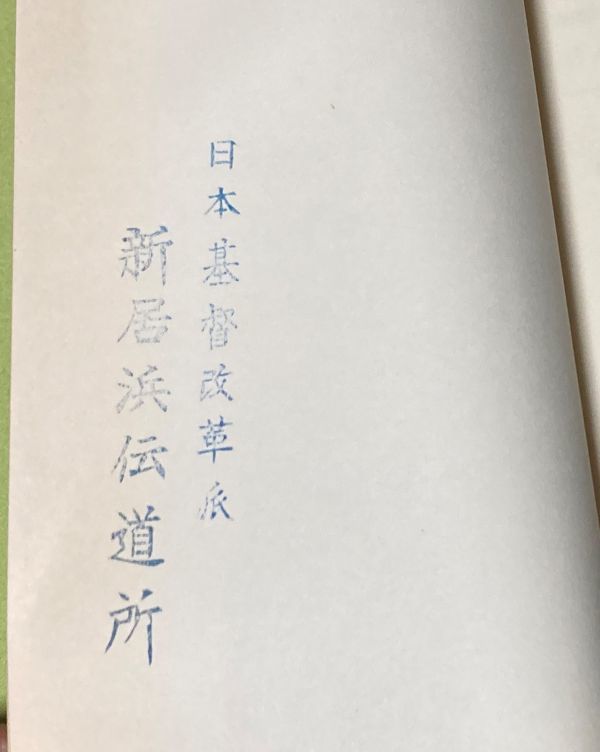 日本基督改革派
新居浜伝道所